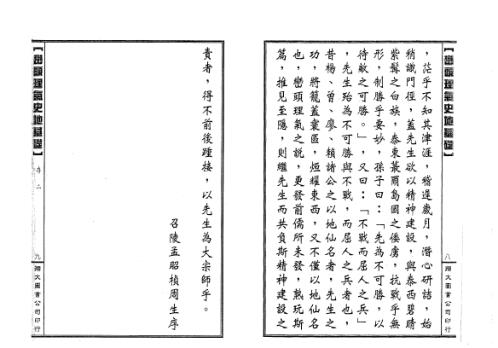 【巒頭理氣史地基礎】
八
翔大圖書公司印行
，茫乎不知其津涯，稽遲歲月，潛心研詰，始
稍識門徑，蓋先生欲以精神建設，與泰西碧睛
紫髯之白族，泰東蕞爾島國之倭虜，抗戰乎無
形，制勝乎要妙，孫子曰：「先為不可勝，以
待敵之可勝。」，又曰：「不戰而屈人之兵」
，先生殆為不可勝與不戰，而屈人之兵者也，
昔楊、曾、廖、賴諸公之以地仙名者，先生之
功，將籠蓋寰區，烜耀東西，又不僅以地仙名
也，巒頭理氣之說，更發前儒所未發，熟玩斯
篇，推見至隱，則繼先生而共負斯精神建設之
責者，得不前後踵接，以先生為大宗師乎。
召陵孟昭楨周生序
【巒頭理氣史地基礎】
九
翔大圖書公司印行